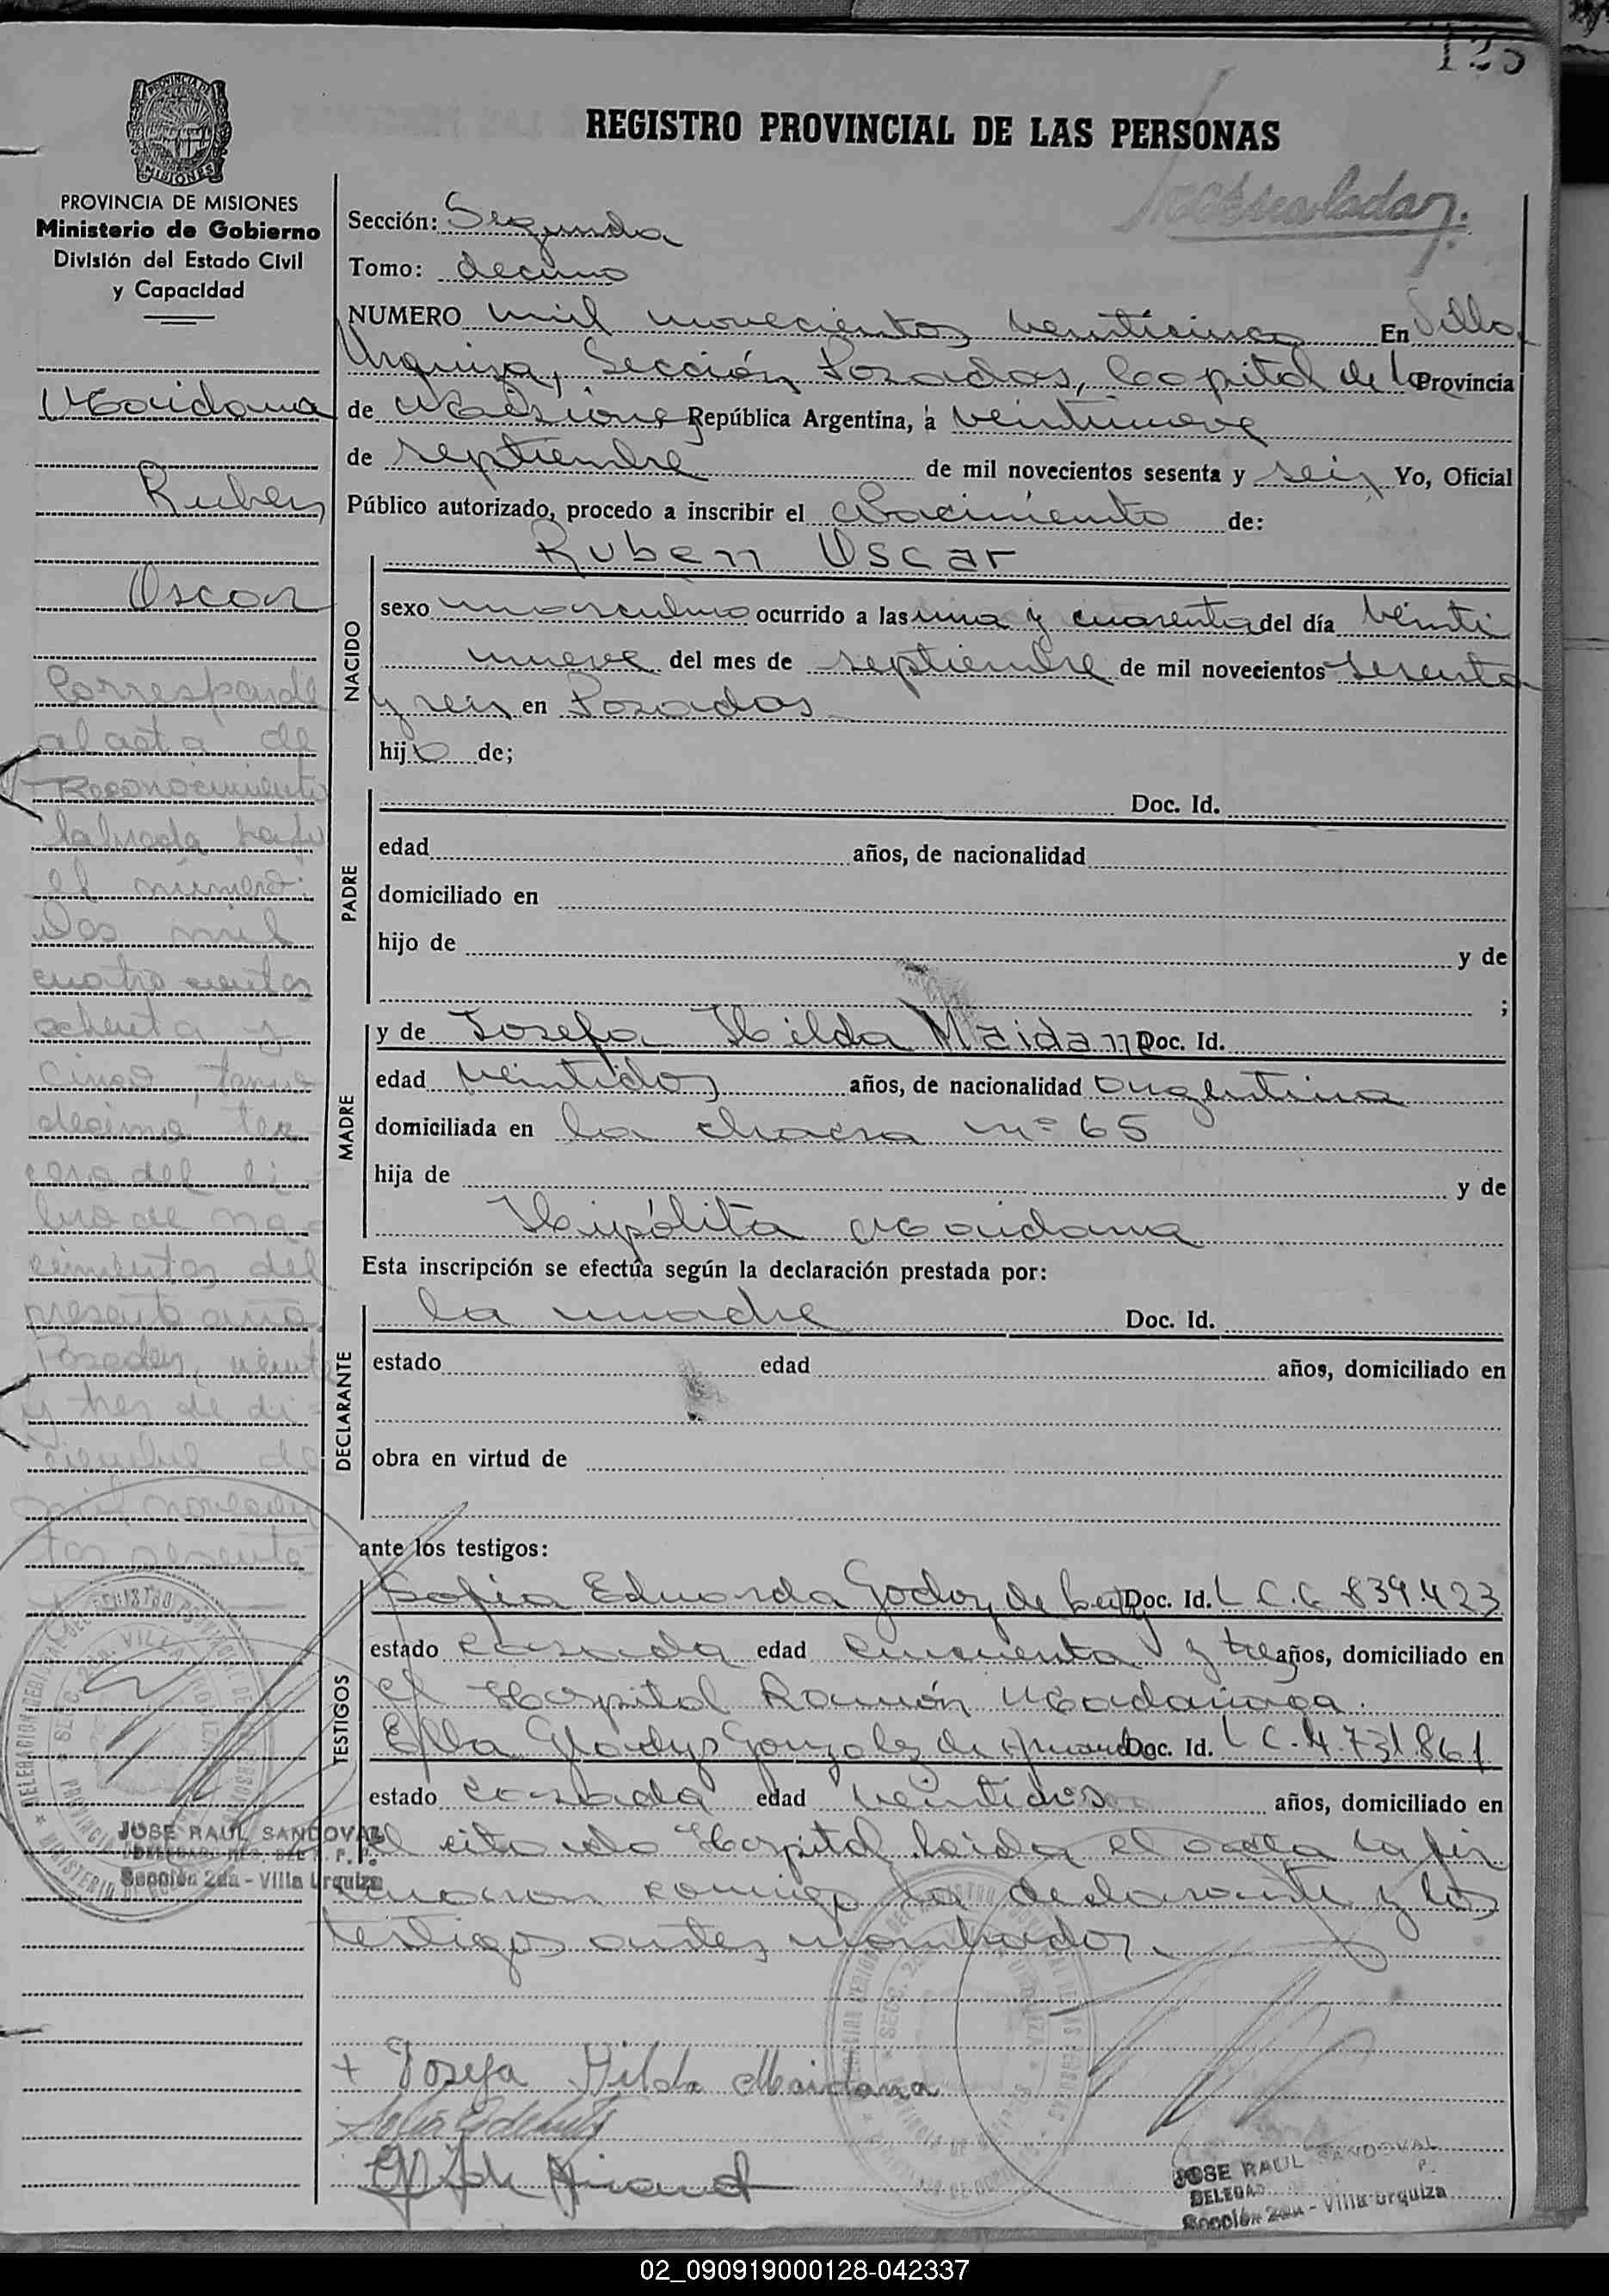 125
REGISTRO PROVINCIAL DE LAS PERSONAS
PROVINCIA DE MISIONES
Ministerio de Gobierno
División del Estado Civil
y Capacidad
Maidana
Ruben
Oscar
Corresponde
al acta de
Reconocimiento
labrada bajo
el número:
Dos mil
cuatro cientos
ochenta y
cinco, tomo
décimo ter-
cero del li-
bro de na-
cimientos del
presente año.
Posadas, veinte
y tres de di-
ciembre de
mil novecien
tos sesenta
Sección: Segunda
Tomo: decimo
NUMERO mil novecientos veinticinco En Villa
Urquiza, Sección Posadas, Capital de la Provincia
de Misiones República Argentina, a veintinueve
de septiembre de mil novecientos sesenta y seis Yo, Oficial
Público autorizado, procedo a inscribir el Nacimiento de:
Ruben Oscar
NACIDO
sexo masculino ocurrido a las una y cuarenta del día veinti
nueve del mes de septiembre de mil novecientos sesenta
y seis en Posadas
hijo de;
PADRE
Doc. Id.
edad años, de nacionalidad
domiciliado en
hijo de y de
;
MADRE
y de Josefa Hilda Maidana Doc. Id.
edad veintidos años, de nacionalidad argentina
domiciliada en la chacra nº 65
hija de y de
Hipólita Maidana
Esta inscripción se efectúa según la declaración prestada por:
DECLARANTE
la madre Doc. Id.
estado edad años, domiciliado en
obra en virtud de
ante los testigos:
TESTIGOS
Sofia Eduarda Godoy de Doc. Id. L C. 6.839.423
estado casada edad cincuenta y tres años, domiciliado en
el Hospital Ramón Madariaga.
Elba Gladys Gonzalez de Doc. Id. L C. 4.731.861
estado casada edad veintidos años, domiciliado en
el citado Hospital. Leida el acta la fir
maron conmigo la declarante y los
testigos antes nombrados.
Josefa Hilda Maidana
JOSE RAUL SANDOVAL
Sección 2da - Villa Urquiza
JOSE RAUL SANDOVAL
Sección 2da - Villa Urquiza
02_090919000128-042337